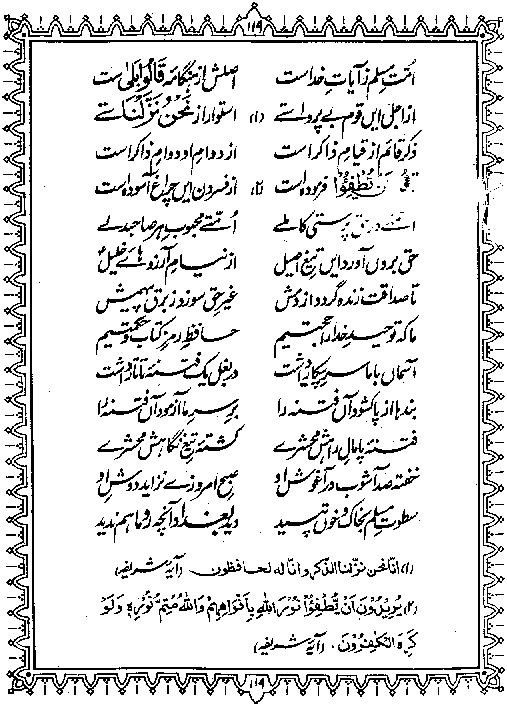 ۱۱۹
امّتِ مسلم ز آیاتِ خداست اصلش از ہنگامۂ قَالُوا بَلٰی است
از اجل ایں قوم بے پرواستے (۱) استوار از نَحْنُ نَزَّلْنَاستے
ذکر قائم از قیامِ ذاکر است از دوامِ او دوامِ ذاکر است
یُّطْفِئُوْا فرمودہ است (۲) از فسردن ایں چراغ آسودہ است
امّتے در حق پرستی کاملے امّتے محبوبِ ہر صاحبدلے
حق بروں آورد ایں تیغِ اصیل از نیامِ آرزوہائے خلیلؑ
تا صداقت زندہ گردد از دمش غیرِ حق سوزد ز برقِ پیہمش
ما کہ توحیدِ خدا را حجّتیم حافظِ رمزِ کتاب و حکمتیم
آسماں با ما سرِ پیکار داشت در بغل یک فتنۂ تاتار داشت
بندہا از پا کشود آں فتنہ را بر سرِ ما آزمود آں فتنہ را
فتنۂ پامالِ راہش محشرے کشتۂ تیغِ نگاہش محشرے
خفتہ صد آشوب در آغوشِ او صبحِ امروزے نزاید دوشِ او
سطوتِ مسلم بخاک و خوں تپید دید بغداد آنچہ روما ہم ندید
(۱) انّا نحن نزّلنا الذّکر و انّا لہ لحافظون (آیۂ شریفہ)
(۲) یُرِیْدُوْنَ اَنْ یُّطْفِئُوْا نُوْرَ اللّٰہِ بِاَفْوَاہِہِمْ وَاللّٰہُ مُتِمُّ نُوْرِہٖ وَلَوْ
کَرِہَ الْکٰفِرُوْنَ۔ (آیۂ شریفہ)
۱۱۹